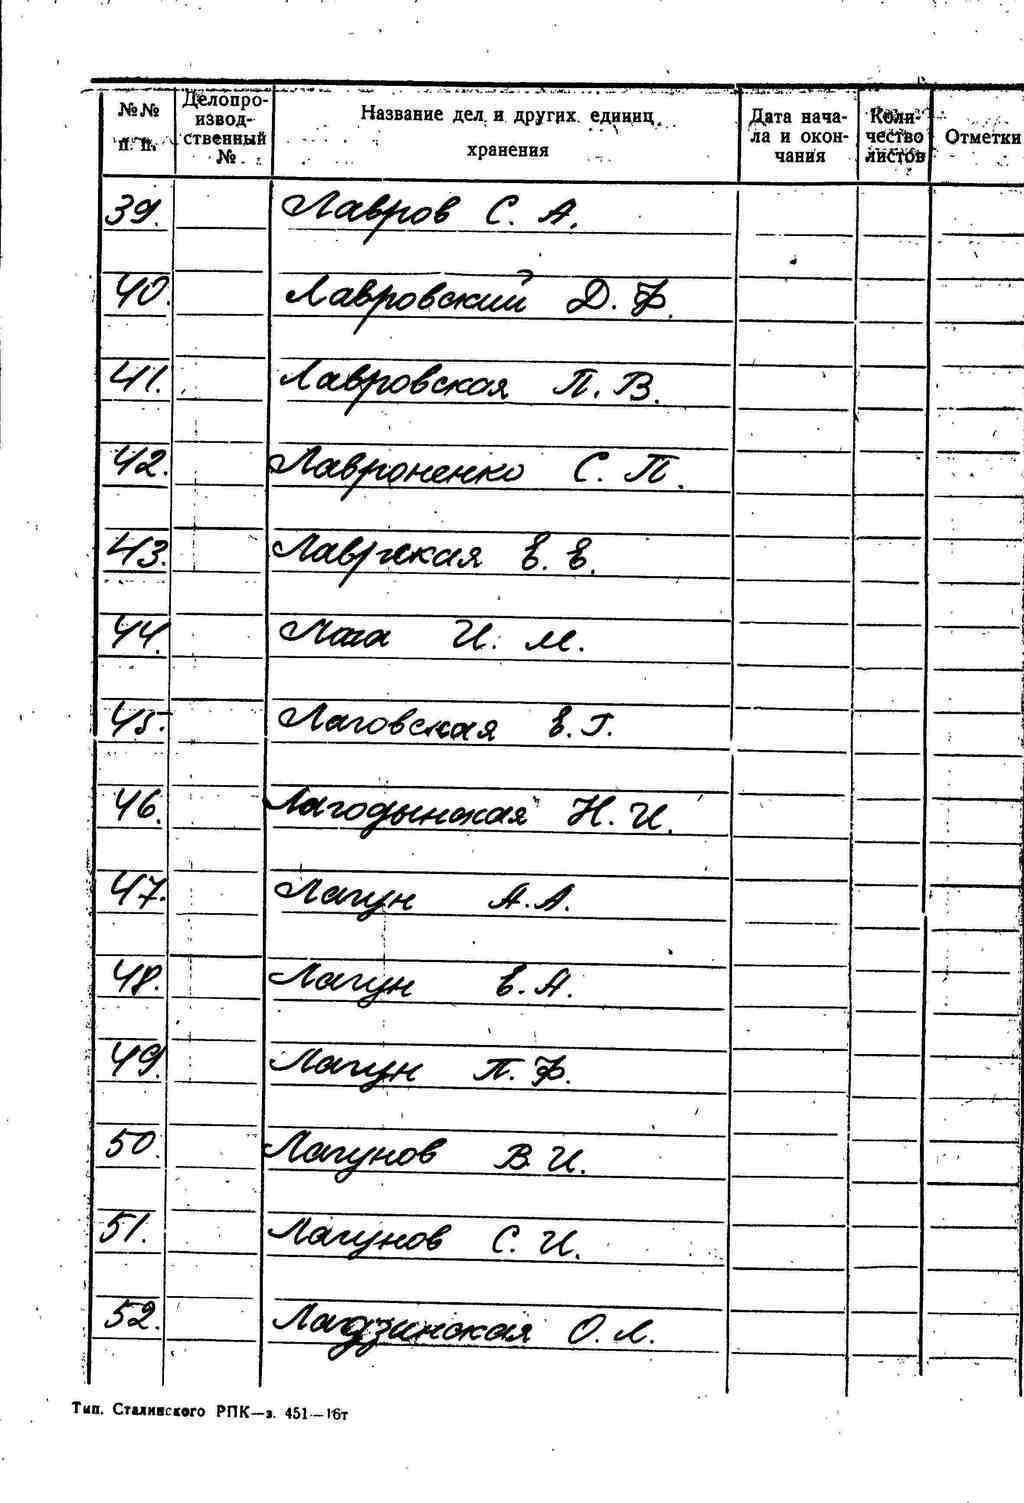 №№ п. п. Делопроизводственный № Название дел и других единиц хранения Дата начала и окончания Количество листов Отметки
39. Лавров С. А.
40. Лавровский Д. Ф.
41. Лавровская П. В.
42. Лавроненко С. П.
43. Е. Е.
44. Лага И. М.
45. Лаговская Е. Г.
46. Лагодынская Н. И.
47. Лагун А. А.
48. Лагун Е. А.
49. Лагун П. Ф.
50. Лагунов В. И.
51. Лагунов С. И.
52. Ладзинская О. Л.
Тип. Сталинского РПК—з. 451—16т